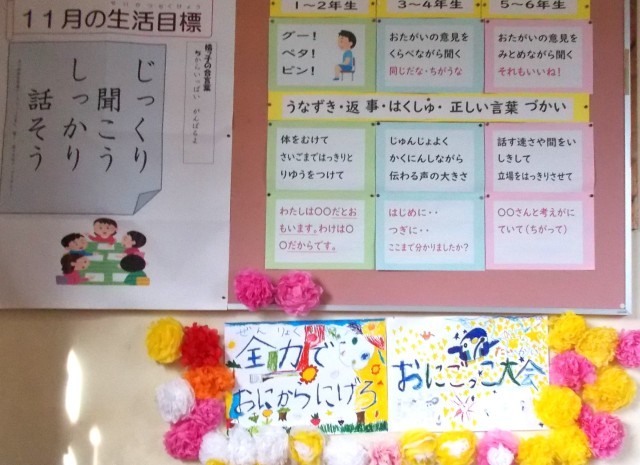 11月の生活目標
じっくり
聞こう
しっかり
話そう
1～2年生
3～4年生
5～6年生
グー!
ペタ!
ピン!
おたがいの意見を
くらべながら聞く
同じだな・ちがうな
おたがいの意見を
みとめながら聞く
それもいいね!
うなずき・返 事・はくしゅ・正しい言葉 づかい
体をむけて
さいごまではっきりと
りゆうをつけて
じゅんじょよく
かくにんしながら
伝わる声の大きさ
話す速さや間をい
しきして
立場をはっきりさせて
わたしは〇〇だとお
もいます。わけは〇
〇だからです。
はじめに・・
つぎに・・
ここまで分かりましたか?
〇〇さんと考えがに
ていて(ちがって)
ぜん りょく
全力で
おにからにげろ
おにごっこ大会